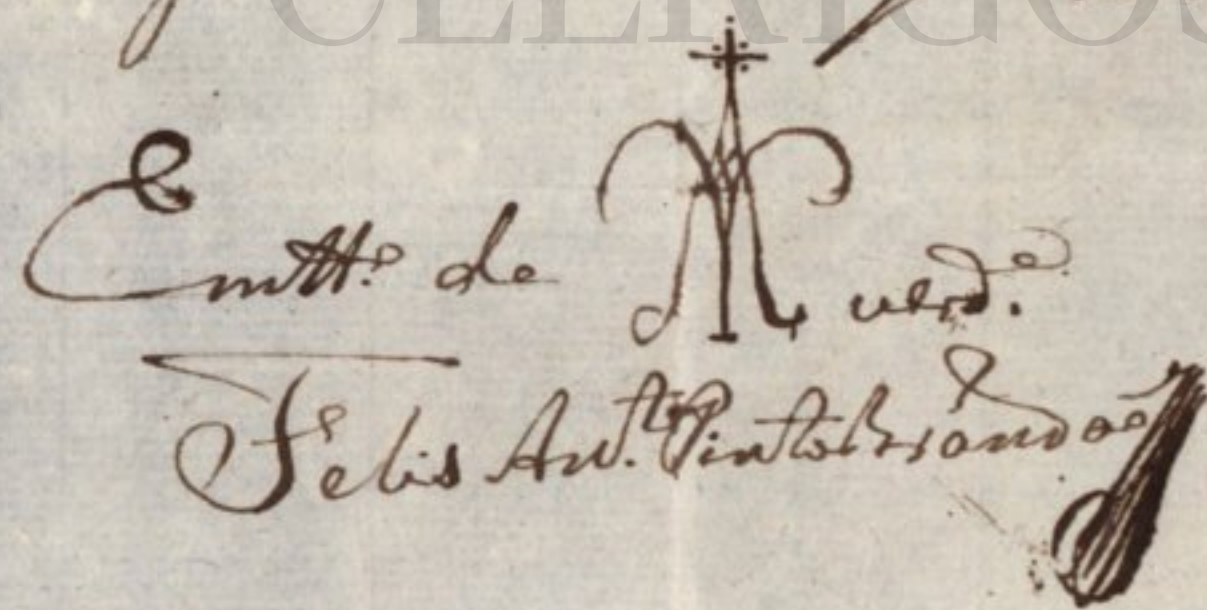 CLERIGOS
Em ttº. de verdᵉ.
Felis Antº. Pinto Brandaõ